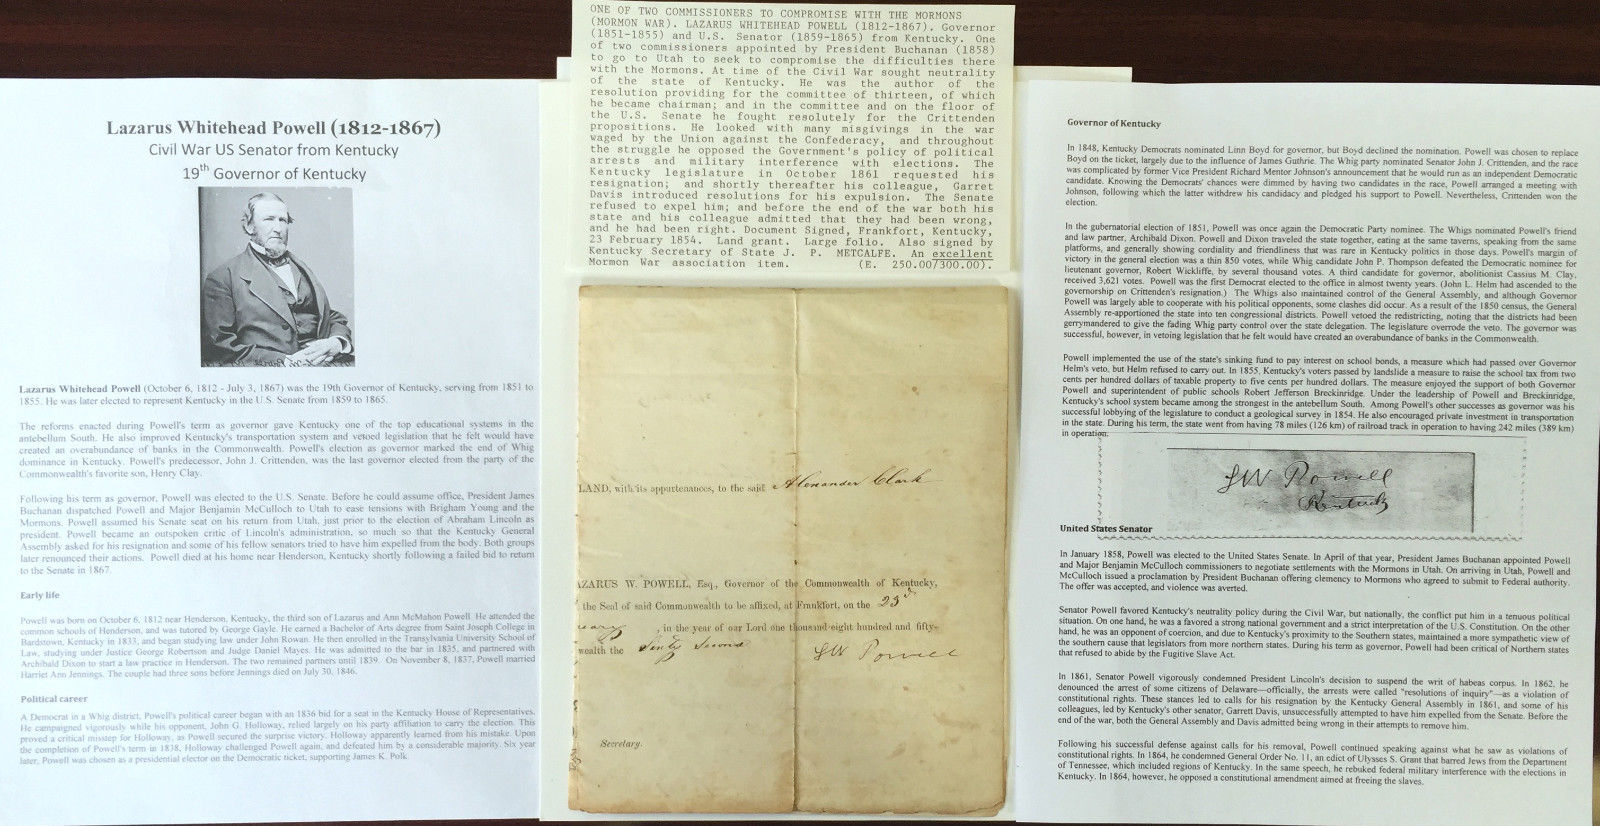 Lazarus Whitehead Powell (1812-1867)
Civil War US Senator from Kentucky
19th Governor of Kentucky
Lazarus Whitehead Powell (October 6, 1812 - July 3, 1867) was the 19th Governor of Kentucky, serving from 1851 to
1855. He was later elected to represent Kentucky in the U.S. Senate from 1859 to 1865.
The reforms enacted during Powell's term as governor gave Kentucky one of the top educational systems in the
antebellum South. He also improved Kentucky's transportation system and vetoed legislation that he felt would have
created an overabundance of banks in the Commonwealth. Powell's election as governor marked the end of Whig
dominance in Kentucky. Powell's predecessor, John J. Crittenden, was the last governor elected from the party of the
Commonwealth's favorite son, Henry Clay.
Following his term as governor, Powell was elected to the U.S. Senate. Before he could assume office, President James
Buchanan dispatched Powell and Major Benjamin McCulloch to Utah to ease tensions with Brigham Young and the
Mormons. Powell assumed his Senate seat on his return from Utah, just prior to the election of Abraham Lincoln as
president. Powell became an outspoken critic of Lincoln's administration, so much so that the Kentucky General
Assembly asked for his resignation and some of his fellow senators tried to have him expelled from the body. Both groups
later renounced their actions. Powell died at his home near Henderson, Kentucky shortly following a failed bid to return
to the Senate in 1867.
Early life
Powell was born on October 6, 1812 near Henderson, Kentucky, the third son of Lazarus and Ann McMahon Powell. He attended the
common schools of Henderson, and was tutored by George Gayle. He earned a Bachelor of Arts degree from Saint Joseph College in
Bardstown, Kentucky in 1833, and began studying law under John Rowan. He then enrolled in the Transylvania University School of
Law, studying under Justice George Robertson and Judge Daniel Mayes. He was admitted to the bar in 1835, and partnered with
Archibald Dixon to start a law practice in Henderson. The two remained partners until 1839. On November 8, 1837, Powell married
Harriet Ann Jennings. The couple had three sons before Jennings died on July 30, 1846.
Political career
A Democrat in a Whig district, Powell's political career began with an 1836 bid for a seat in the Kentucky House of Representatives.
He campaigned vigorously while his opponent, John G. Holloway, relied largely on his party affiliation to carry the election. This
proved a critical misstep for Holloway, as Powell secured the surprise victory. Holloway apparently learned from his mistake. Upon
the completion of Powell's term in 1838, Holloway challenged Powell again, and defeated him by a considerable majority. Six year
later, Powell was chosen as a presidential elector on the Democratic ticket, supporting James K. Polk.
ONE OF TWO COMMISSIONERS TO COMPROMISE WITH THE MORMONS
(MORMON WAR). LAZARUS WHITEHEAD POWELL (1812-1867). Governor
(1851-1855) and U.S. Senator (1859-1865) from Kentucky. One
of two commissioners appointed by President Buchanan (1858)
to go to Utah to seek to compromise the difficulties there
with the Mormons. At time of the Civil War sought neutrality
of the state of Kentucky. He was the author of the
resolution providing for the committee of thirteen, of which
he became chairman; and in the committee and on the floor of
the U.S. Senate he fought resolutely for the Crittenden
propositions. He looked with many misgivings in the war
waged by the Union against the Confederacy, and throughout
the struggle he opposed the Government's policy of political
arrests and military interference with elections. The
Kentucky legislature in October 1861 requested his
resignation; and shortly thereafter his colleague, Garret
Davis introduced resolutions for his expulsion. The Senate
refused to expel him; and before the end of the war both his
state and his colleague admitted that they had been wrong,
and he had been right. Document Signed, Frankfort, Kentucky,
23 February 1854. Land grant. Large folio. Also signed by
Kentucky Secretary of State J. P. METCALFE. An excellent
Mormon War association item. (E. 250.00/300.00).
LAND, with its appurtenances, to the said Alexander Clark
AZARUS W. POWELL, Esq., Governor of the Commonwealth of Kentucky,
the Seal of said Commonwealth to be affixed, at Frankfort, on the 23d
uary, in the year of our Lord one thousand eight hundred and fifty-
wealth the Sixty Second
LW Powell
Secretary.
Governor of Kentucky
In 1848, Kentucky Democrats nominated Linn Boyd for governor, but Boyd declined the nomination. Powell was chosen to replace
Boyd on the ticket, largely due to the influence of James Guthrie. The Whig party nominated Senator John J. Crittenden, and the race
was complicated by former Vice President Richard Mentor Johnson's announcement that he would run as an independent Democratic
candidate. Knowing the Democrats' chances were dimmed by having two candidates in the race, Powell arranged a meeting with
Johnson, following which the latter withdrew his candidacy and pledged his support to Powell. Nevertheless, Crittenden won the
election.
In the gubernatorial election of 1851, Powell was once again the Democratic Party nominee. The Whigs nominated Powell's friend
and law partner, Archibald Dixon. Powell and Dixon traveled the state together, eating at the same taverns, speaking from the same
platforms, and generally showing cordiality and friendliness that was rare in Kentucky politics in those days. Powell's margin of
victory in the general election was a thin 850 votes, while Whig candidate John P. Thompson defeated the Democratic nominee for
lieutenant governor, Robert Wickliffe, by several thousand votes. A third candidate for governor, abolitionist Cassius M. Clay,
received 3,621 votes. Powell was the first Democrat elected to the office in almost twenty years. (John L. Helm had ascended to the
governorship on Crittenden's resignation.) The Whigs also maintained control of the General Assembly, and although Governor
Powell was largely able to cooperate with his political opponents, some clashes did occur. As a result of the 1850 census, the General
Assembly re-apportioned the state into ten congressional districts. Powell vetoed the redistricting, noting that the districts had been
gerrymandered to give the fading Whig party control over the state delegation. The legislature overrode the veto. The governor was
successful, however, in vetoing legislation that he felt would have created an overabundance of banks in the Commonwealth.
Powell implemented the use of the state's sinking fund to pay interest on school bonds, a measure which had passed over Governor
Helm's veto, but Helm refused to carry out. In 1855, Kentucky's voters passed by landslide a measure to raise the school tax from two
cents per hundred dollars of taxable property to five cents per hundred dollars. The measure enjoyed the support of both Governor
Powell and superintendent of public schools Robert Jefferson Breckinridge. Under the leadership of Powell and Breckinridge,
Kentucky's school system became among the strongest in the antebellum South. Among Powell's other successes as governor was his
successful lobbying of the legislature to conduct a geological survey in 1854. He also encouraged private investment in transportation
in the state. During his term, the state went from having 78 miles (126 km) of railroad track in operation to having 242 miles (389 km)
in operation.
LW Powell
Kentucky
United States Senator
In January 1858, Powell was elected to the United States Senate. In April of that year, President James Buchanan appointed Powell
and Major Benjamin McCulloch commissioners to negotiate settlements with the Mormons in Utah. On arriving in Utah, Powell and
McCulloch issued a proclamation by President Buchanan offering clemency to Mormons who agreed to submit to Federal authority.
The offer was accepted, and violence was averted.
Senator Powell favored Kentucky's neutrality policy during the Civil War, but nationally, the conflict put him in a tenuous political
situation. On one hand, he was a favored a strong national government and a strict interpretation of the U.S. Constitution. On the other
hand, he was an opponent of coercion, and due to Kentucky's proximity to the Southern states, maintained a more sympathetic view of
the southern cause that legislators from more northern states. During his term as governor, Powell had been critical of Northern states
that refused to abide by the Fugitive Slave Act.
In 1861, Senator Powell vigorously condemned President Lincoln's decision to suspend the writ of habeas corpus. In 1862, he
denounced the arrest of some citizens of Delaware—officially, the arrests were called "resolutions of inquiry"—as a violation of
constitutional rights. These stances led to calls for his resignation by the Kentucky General Assembly in 1861, and some of his
colleagues, led by Kentucky's other senator, Garrett Davis, unsuccessfully attempted to have him expelled from the Senate. Before the
end of the war, both the General Assembly and Davis admitted being wrong in their attempts to remove him.
Following his successful defense against calls for his removal, Powell continued speaking against what he saw as violations of
constitutional rights. In 1864, he condemned General Order No. 11, an edict of Ulysses S. Grant that barred Jews from the Department
of Tennessee, which included regions of Kentucky. In the same speech, he rebuked federal military interference with the elections in
Kentucky. In 1864, however, he opposed a constitutional amendment aimed at freeing the slaves.